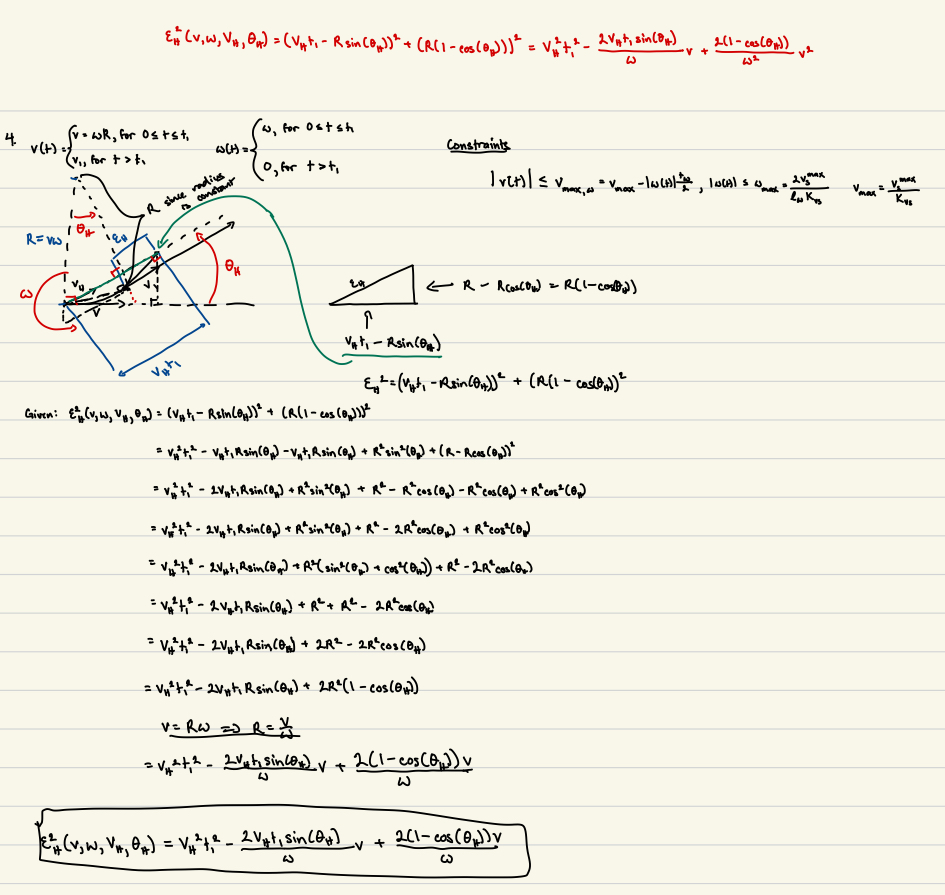 ε_H²(v,ω,V_H,θ_H) = (V_H t₁ - R sin(θ_H))² + (R(1-cos(θ_H)))² = V_H² t₁² - (2V_H t₁ sin(θ_H)/ω) v + (2(1-cos(θ_H))/ω²) v²
4. v(t) = { v = ωR, for 0 ≤ t ≤ t₁
v₁, for t > t₁
ω(t) = { ω, for 0 ≤ t ≤ t₁
0, for t > t₁
Constraints
|v(t)| ≤ v_max,ω = v_max - |ω(t)| ℓ_ω/2, |ω(t)| ≤ ω_max = 2v_s^max/(ℓ_ω K_vs) v_max = v_s^max/K_vs
R since radius is constant
θ_H
ε_H
R = vω
θ_H
ω
V_H
v
V_H t₁
ε_H
← R - Rcos(θ_H) = R(1-cos(θ_H))
V_H t₁ - Rsin(θ_H)
ε_H² = (V_H t₁ - Rsin(θ_H))² + (R(1 - cos(θ_H))²
Given: ε_H²(v,ω,V_H,θ_H) = (V_H t₁ - Rsin(θ_H))² + (R(1-cos(θ_H))²
= V_H² t₁² - V_H t₁ Rsin(θ_H) - V_H t₁ Rsin(θ_H) + R² sin²(θ_H) + (R - Rcos(θ_H))²
= V_H² t₁² - 2V_H t₁ Rsin(θ_H) + R² sin²(θ_H) + R² - R² cos(θ_H) - R² cos(θ_H) + R² cos²(θ_H)
= V_H² t₁² - 2V_H t₁ Rsin(θ_H) + R² sin²(θ_H) + R² - 2R² cos(θ_H) + R² cos²(θ_H)
= V_H² t₁² - 2V_H t₁ Rsin(θ_H) + R²(sin²(θ_H) + cos²(θ_H)) + R² - 2R² cos(θ_H)
= V_H² t₁² - 2V_H t₁ Rsin(θ_H) + R² + R² - 2R² cos(θ_H)
= V_H² t₁² - 2V_H t₁ Rsin(θ_H) + 2R² - 2R² cos(θ_H)
= V_H² t₁² - 2V_H t₁ Rsin(θ_H) + 2R²(1 - cos(θ_H))
v = Rω ⇒ R = v/ω
= V_H² t₁² - (2V_H t₁ sin(θ_H)/ω) v + 2(1-cos(θ_H))v/ω
ε_H²(v,ω,V_H,θ_H) = V_H² t₁² - (2V_H t₁ sin(θ_H)/ω) v + 2(1-cos(θ_H))v/ω